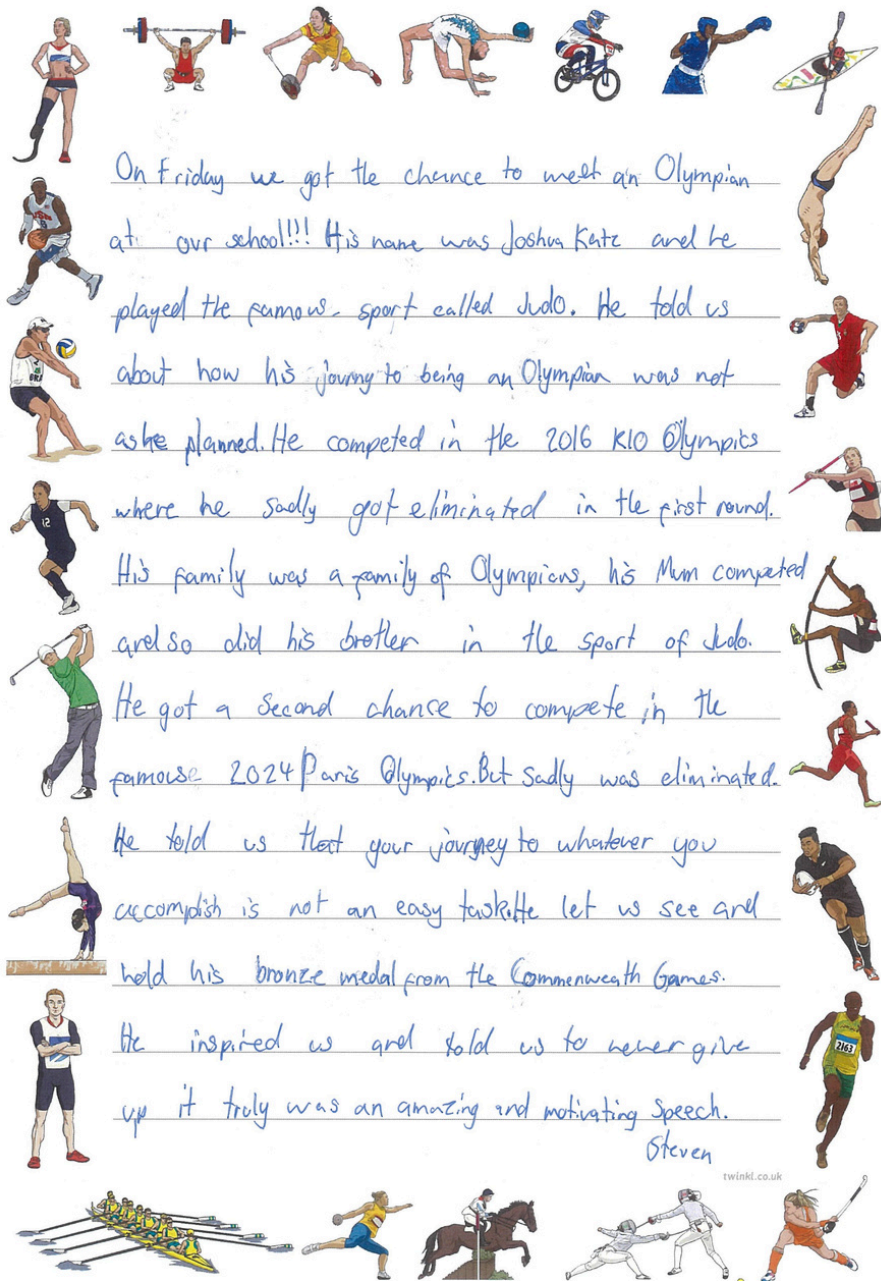 On Friday we got the chance to meet an Olympian
at our school!!! His name was Joshua Katz and he
played the famous sport called Judo. He told us
about how his journy to being an Olympian was not
as he planned. He competed in the 2016 RIO Olympics
where he sadly got eliminated in the first round.
His family was a family of Olympians, his Mum competed
and so did his brother in the sport of Judo.
He got a second chance to compete in the
famouse 2024 Paris Olympics. But sadly was eliminated.
He told us that your journey to whatever you
accomplish is not an easy task. He let us see and
hold his bronze medal from the Commenweath Games.
He inspired us and told us to never give
up it truly was an amazing and motivating speech.
Steven
twinkl.co.uk
12
2163